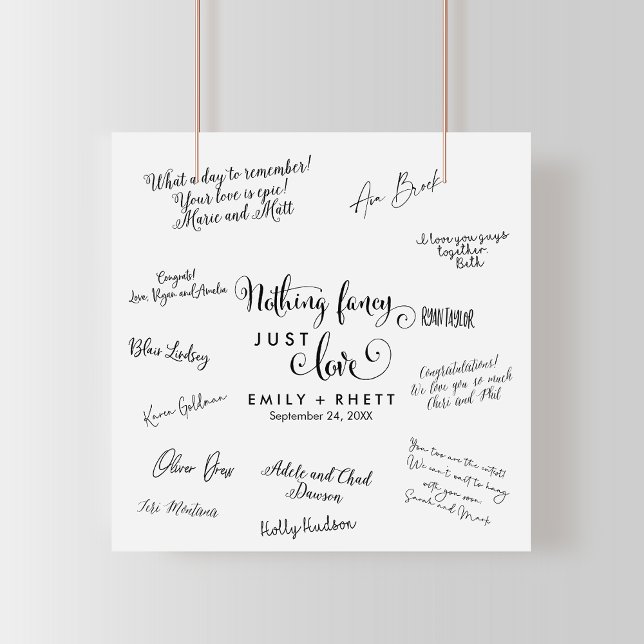 What a day to remember!
Your love is epic!
Marie and Matt
Ava Brock
I love you guys
together.
Beth
Congrats!
Love, Ryan and Amelia
Nothing fancy
JUST
love
EMILY + RHETT
September 24, 20XX
RYAN TAYLOR
Blair Lindsey
Congratulations!
We love you so much
Cheri and Phil
Karen Goldman
Oliver Drew
Adele and Chad
Dawson
You too are the cutest!
We can't wait to hang
with you soon.
Sarah and Mark
Teri Montana
Holly Hudson